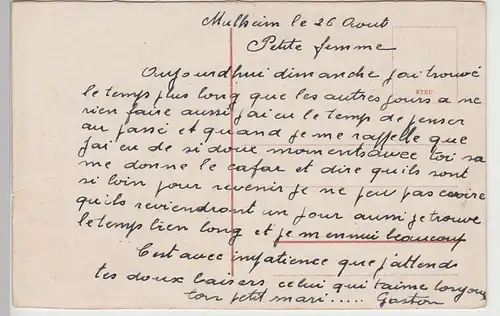 Mulheim le 26 Aout
Petite femme
Aujourdhui dimanche j'ai trouvé
le temps plus long que les autres jours a ne
rien faire aussi j'ai eu le temps de penser
au passé et quand je me rappelle que
j'ai eu de si doux moments avec toi sa
me donne le cafar et dire qu'ils sont
si loin pour revenir je ne peu pas croire
qu'ils reviendront un jour aussi je trouve
le temps bien long et je m'ennui beaucoup
C'est avec impatience que j'attends
tes doux baisers celui qui t'aime toujours
ton petit mari ..... Gaston
ETEU